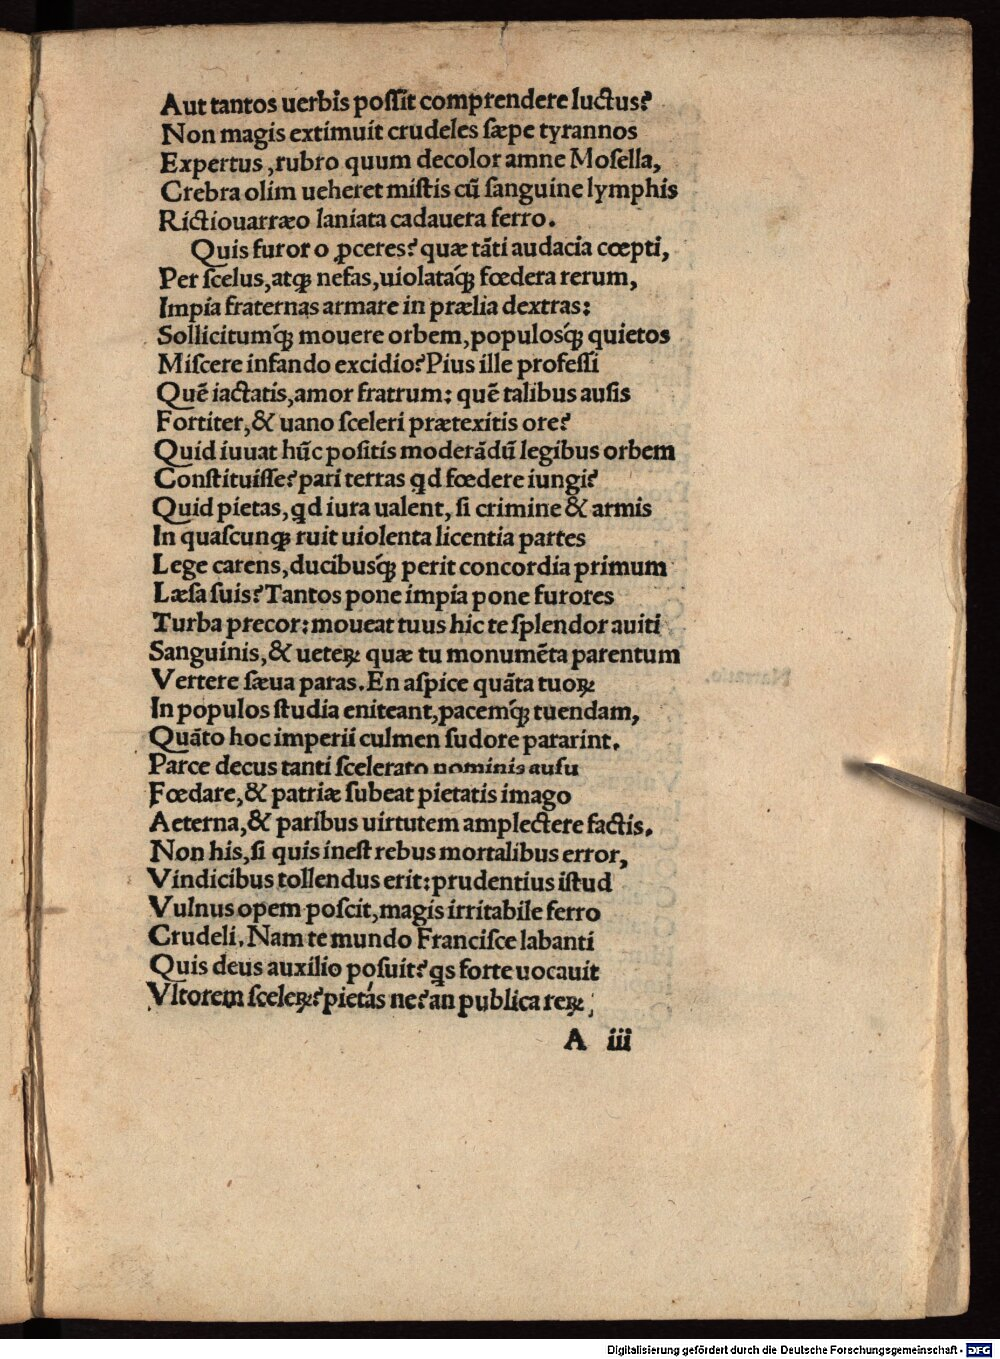 Aut tantos uerbis possit comprendere luctus?
Non magis extimuit crudeles sæpe tyrannos
Expertus, rubro quum decolor amne Mosella,
Crebra olim ueheret mistis cũ sanguine lymphis
Rictiouarræo laniata cadauera ferro.
Quis furor o ꝓceres? quæ tãti audacia cœpti,
Per scelus, atqꝫ nefas, uiolataqꝫ fœdera rerum,
Impia fraternas armare in prælia dextras:
Sollicitumqꝫ mouere orbem, populosqꝫ quietos
Miscere infando excidio? Pius ille professi
Quẽ iactatis, amor fratrum: quẽ talibus ausis
Fortiter, & uano sceleri prætexitis ore?
Quid iuuat hũc positis moderãdũ legibus orbem
Constituisse? pari terras qd fœdere iungi?
Quid pietas, qd iura ualent, si crimine & armis
In quascunqꝫ ruit uiolenta licentia partes
Lege carens, ducibusqꝫ perit concordia primum
Læsa suis? Tantos pone impia pone furores
Turba precor: moueat tuus hic te splendor auiti
Sanguinis, & ueteꝝ quæ tu monumẽta parentum
Vertere sæua paras. En aspice quãta tuoꝝ
In populos studia eniteant, pacemqꝫ tuendam,
Quãto hoc imperii culmen sudore pararint.
Parce decus tanti scelerato nominis ausu
Fœdare, & patriæ subeat pietatis imago
Aeterna, & paribus uirtutem amplectere factis.
Non his, si quis inest rebus mortalibus error,
Vindicibus tollendus erit: prudentius istud
Vulnus opem poscit, magis irritabile ferro
Crudeli. Nam te mundo Francisce labanti
Quis deus auxilio posuit? qs forte uocauit
Vltorem sceleꝝ? pietás ne? an publica reꝝ,
A iii
Digitalisierung gefördert durch die Deutsche Forschungsgemeinschaft - DFG